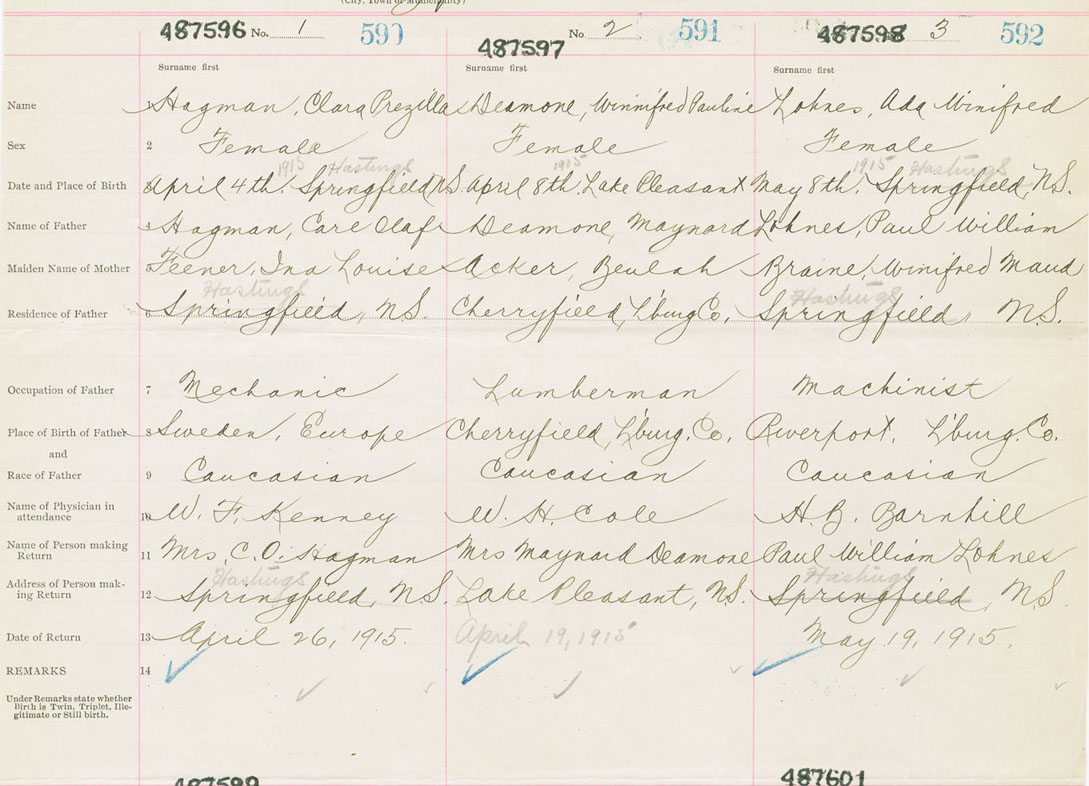 (City, Town or Municipality)
487596 No. 1 590 487597 No 2 591 487598 3 592
Surname first Surname first Surname first
Name 1 Hagman, Clara Prezilla Deamone, Winnifred Pauline Lohnes, Ada Winifred
Sex 2 Female Female Female
1915 Hastings 1915 1915 Hastings
Date and Place of Birth 3 April 4th, Springfield, N.S. April 8th, Lake Pleasant May 8th, Springfield, N.S.
Name of Father 4 Hagman, Care Olaf Deamone, Maynard Lohnes, Paul William
Maiden Name of Mother 5 Feener, Ina Louise Acker, Beulah Braine, Winifred Maud
Hastings Hastings
Residence of Father 6 Springfield, N.S. Cherryfield, L'burg Co. Springfield, N.S.
Occupation of Father 7 Mechanic Lumberman Machinist
Place of Birth of Father 8 Sweden, Europe Cherryfield, L'burg. Co. Riverport, L'burg. Co.
and
Race of Father 9 Caucasian Caucasian Caucasian
Name of Physician in
attendance 10 W. F. Kenney W. H. Cole H. B. Barnhill
Name of Person making
Return 11 Mrs. C. O. Hagman Mrs Maynard Deamone Paul William Lohnes
Hastings Hastings
Address of Person mak-
ing Return 12 Springfield, N.S. Lake Pleasant, N.S. Springfield, N.S.
Date of Return 13 April 26, 1915. April 19, 1915 May 19, 1915.
REMARKS 14
Under Remarks state whether
Birth is Twin, Triplet, Ille-
gitimate or Still birth.
487599 487601